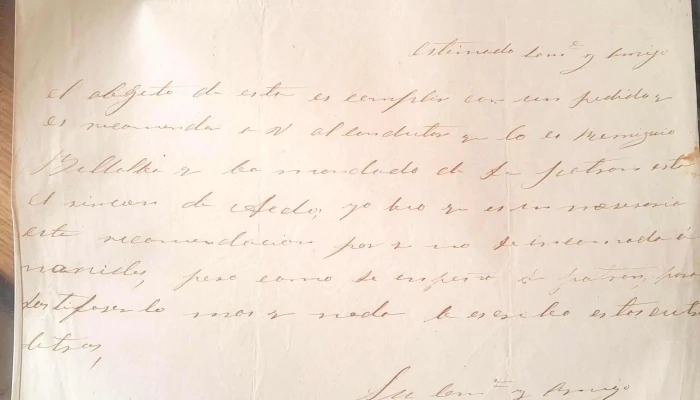 estimado Com.e y Amigo
el obgeto de esta es cumplir con un pedido y
es recomendar a V al conductor q lo es Remigio
Billalba y ba mandado de Su patron
el rincon de ya beo q es un nesesaria
esta recomendacion por q no
pero como se empeña el patron, por
satisfaserlo mas q nada le escribo estas cuatro
letras,
Su Com.e y Amigo